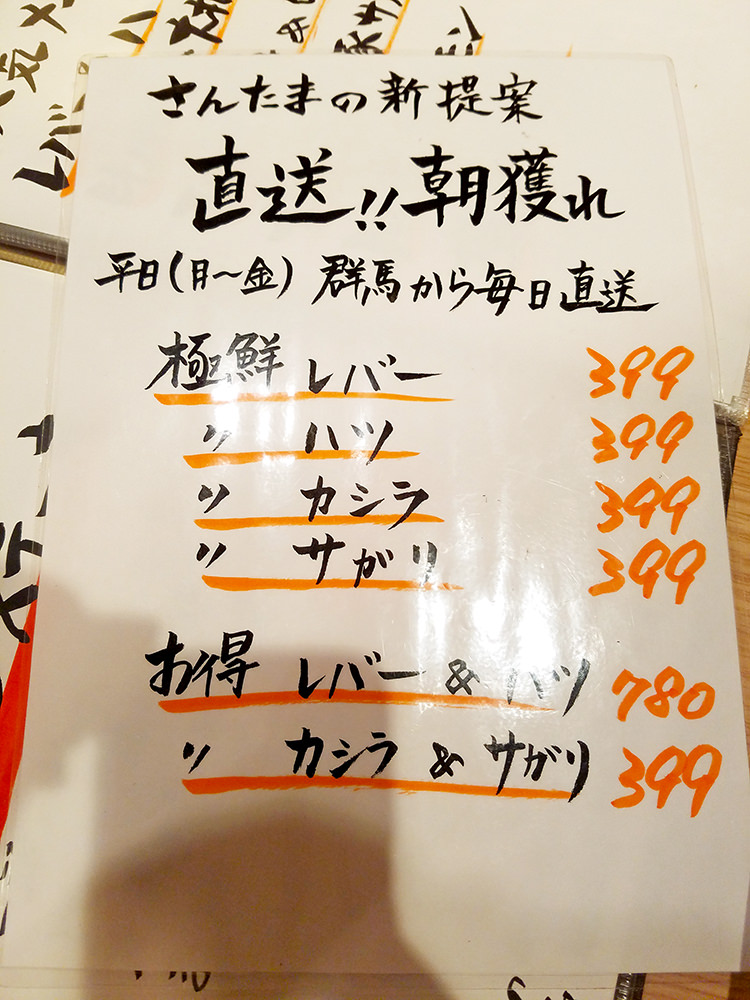 さんたまの新提案
直送!!朝獲れ
平日(月～金)群馬から毎日直送
極鮮 レバー 399
〃 ハツ 399
〃 カシラ 399
〃 サガリ 399
お得 レバー & ハツ 780
〃 カシラ & サガリ 399